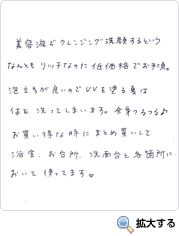 美容液でクレンジング洗顔するという
なんともリッチなのに低価格でお手頃。
泡立ちが良いのでUVを塗る夏は
体も洗ってしまいます。全身つるつる♪
お買い得な時にまとめ買いして
浴室、お台所、洗面台と各箇所に
おいて使ってます。
拡大する